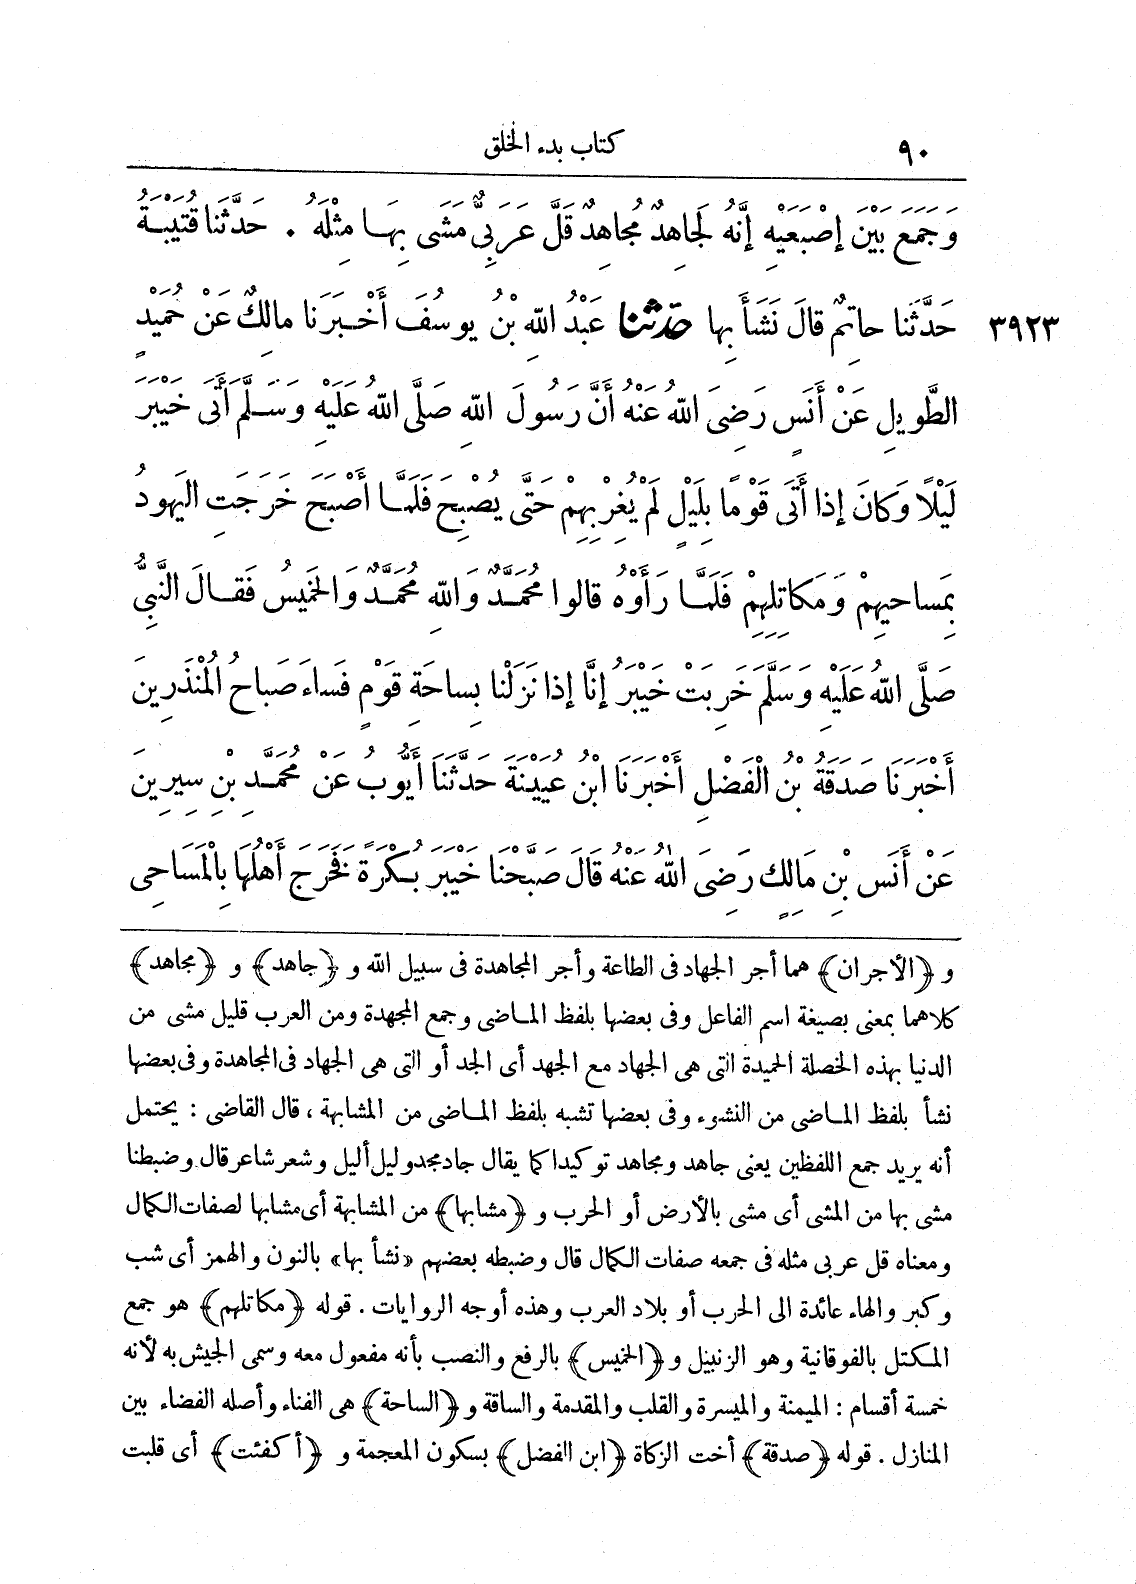 ٩٠ كتاب بدء الخلق
وَجَمَعَ بَيْنَ إِصْبَعَيْهِ إِنَّهُ لَجَاهِدٌ مُجَاهِدٌ قَلَّ عَرَبِيٌّ مَشَى بِهَا مِثْلَهُ . حَدَّثَنَا قُتَيْبَةُ
٣٩٢٣ حَدَّثَنَا حاتِمٌ قالَ نَشَأَ بِها حدثنا عَبْدُ اللهِ بْنُ يوسُفَ أَخْبَرَنَا مالِكٌ عَنْ حُمَيْدٍ
الطَّوِيلِ عَنْ أَنَسٍ رَضِىَ اللهُ عَنْهُ أَنَّ رَسُولَ اللهِ صَلَّى اللهُ عَلَيْهِ وَسَلَّمَ أَتَى خَيْبَرَ
لَيْلًا وَكانَ إِذا أَتَى قَوْمًا بِلَيْلٍ لَمْ يُغِرْ بِهِمْ حَتَّى يُصْبِحَ فَلَمَّا أَصْبَحَ خَرَجَتِ اليَهودُ
بِمَساحِيهِمْ وَمَكَاتِلِهِمْ فَلَمَّا رَأَوْهُ قالوا مُحَمَّدٌ وَاللهِ مُحَمَّدٌ وَالخَمِيسُ فَقالَ النَّبِيُّ
صَلَّى اللهُ عَلَيْهِ وَسَلَّمَ خَرِبَتْ خَيْبَرُ إِنَّا إِذا نَزَلْنا بِساحَةِ قَوْمٍ فَساءَ صَباحُ المُنْذَرِينَ
أَخْبَرَنَا صَدَقَةُ بْنُ الْفَضْلِ أَخْبَرَنَا ابْنُ عُيَيْنَةَ حَدَّثَنَا أَيُّوبُ عَنْ مُحَمَّدِ بْنِ سِيرِينَ
عَنْ أَنَسِ بْنِ مَالِكٍ رَضِىَ اللهُ عَنْهُ قَالَ صَبَّحْنَا خَيْبَرَ بُكْرَةً فَخَرَجَ أَهْلُهَا بِالْمَسَاحِى
و ﴿الأجران﴾ هما أجر الجهاد فى الطاعة وأجر المجاهدة فى سبيل الله و ﴿جاهد﴾ و ﴿مجاهد﴾
كلاهما بمعنى بصيغة اسم الفاعل وفى بعضها بلفظ الماضى وجمع المجهدة ومن العرب قليل مشى من
الدنيا بهذه الخصلة الحميدة التى هى الجهاد مع الجهد أى الجد أو التى هى الجهاد فى المجاهدة وفى بعضها
نشأ بلفظ الماضى من النشوء وفى بعضها تشبه بلفظ الماضى من المشابهة ، قال القاضى : يحتمل
أنه يريد جمع اللفظين يعنى جاهد ومجاهد توكيدا كما يقال جاد مجد وليل أليل وشعر شاعر قال وضبطنا
مشى بها من المشى أى مشى بالأرض أو الحرب و ﴿مشابها﴾ من المشابهة أى مشابها لصفات الكمال
ومعناه قل عربى مثله فى جمعه صفات الكمال قال وضبطه بعضهم «نشأ بها» بالنون والهمز أى شب
وكبر والهاء عائدة الى الحرب أو بلاد العرب وهذه أوجه الروايات . قوله ﴿مكاتلهم﴾ هو جمع
المكتل بالفوقانية وهو الزنبيل و ﴿الخميس﴾ بالرفع والنصب بأنه مفعول معه وسمى الجيش به لأنه
خمسة أقسام : الميمنة والميسرة والقلب والمقدمة والساقة و ﴿الساحة﴾ هى الفناء وأصله الفضاء بين
المنازل . قوله ﴿صدقة﴾ أخت الزكاة ﴿ابن الفضل﴾ بسكون المعجمة و ﴿أكفئت﴾ أى قلبت